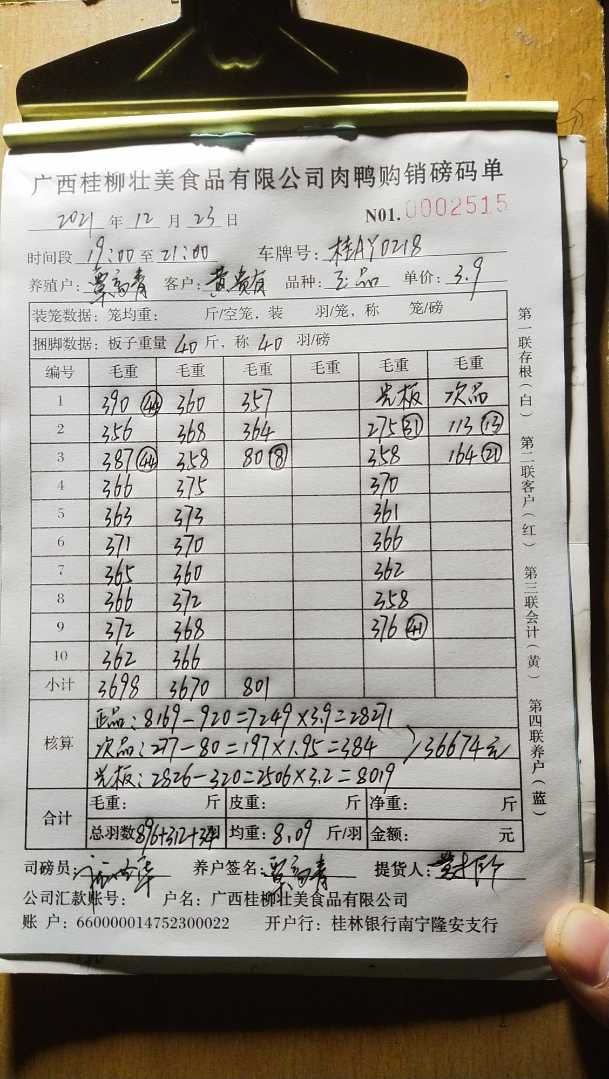 广西桂柳壮美食品有限公司肉鸭购销磅码单
2021 年 12 月 23 日 N01.0002515
时间段 19:00 至 21:00 车牌号: 桂AY0218
养殖户: 覃高青 客户: 黄贵有 品种: 正品 单价: 3.9
装笼数据: 笼均重: 斤/空笼, 装 羽/笼, 称 笼/磅
捆脚数据: 板子重量 40 斤, 称 40 羽/磅
编号 毛重 毛重 毛重 毛重 毛重 毛重
1 390 (44) 360 357 光板 次品
2 356 368 364 275 (31) 113 (13)
3 387 (44) 358 80 (8) 358 164 (21)
4 366 375 370
5 363 373 361
6 371 370 366
7 365 360 362
8 366 372 358
9 372 368 376 (41)
10 362 366
小计 3698 3670 801
核算
正品: 8169-920=7249×3.9=28271
次品: 277-80=197×1.95=384 } 36674元
光板: 2826-320=2506×3.2=8019
合计
毛重: 斤 皮重: 斤 净重: 斤
总羽数 896+312+34 羽 均重: 8.09 斤/羽 金额: 元
司磅员: 养户签名: 覃高青 提货人:
公司汇款账号: 户名: 广西桂柳壮美食品有限公司
账 户: 660000014752300022 开户行: 桂林银行南宁隆安支行
第一联存根(白) 第二联客户(红) 第三联会计(黄) 第四联养户(蓝)